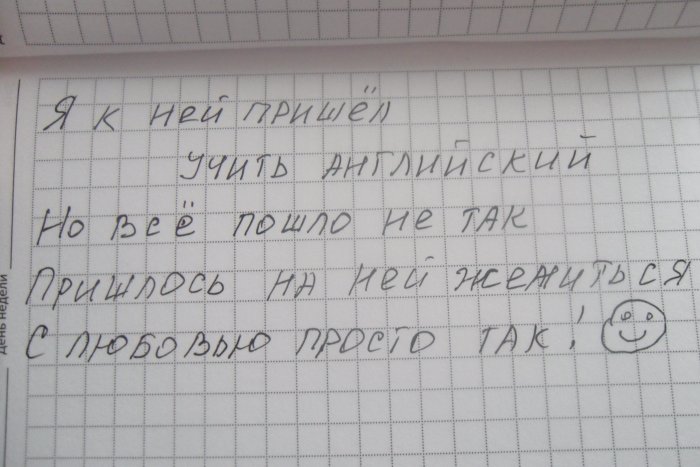 Я к ней пришёл
учить английский
Но всё пошло не так
Пришлось на ней жениться
С любовью просто так!
день недели